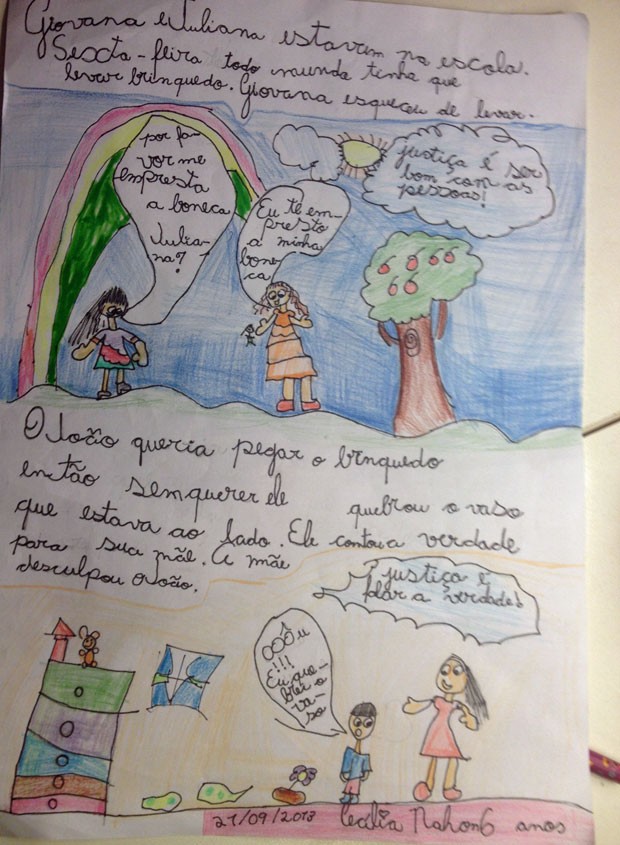 Giovana e Juliana estavam na escola.
Sexta-feira todo mundo tinha que
levar brinquedo. Giovana esqueceu de levar.
por fa-
vor me
empresta
a boneca
Julia-
na?
Eu te em-
presto
a minha
bone-
ca
justiça é ser
bom com as
pessoas!
O João queria pegar o brinquedo
então sem querer ele quebrou o vaso
que estava ao lado. Ele contou a verdade
para sua mãe. A mãe
desculpou o João.
justiça é
falar a verdade!
OOÔu
!!!
Eu que-
brei o
va-
so
21/09/2013 Cecília Nahon 6 anos